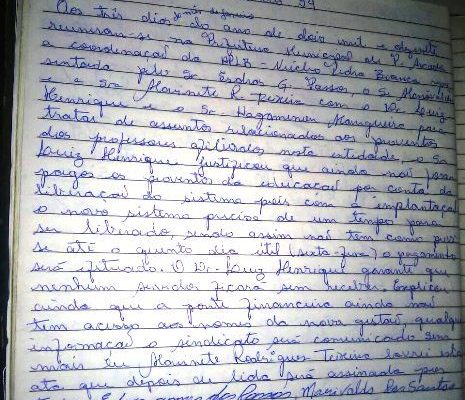 Aos três dias do mês de
do ano de dois mil e dezessete
reuniram-se na Prefeitura Municipal de P.
a coordenação da APLB - Núcleo Pedra Branca,
sentada pelo Sr Esdras G. Passos, o Sr
e a Sra Marinete R. Teixeira com o Dr Luiz
Henrique e o Sr Hagamenon Mangueira para
tratar de assuntos relacionados aos proventos
dos professores afiliados nesta entidade, o Sr
Luiz Henrique justificou que ainda não foram
pagos os proventos da educação por conta da
liberação do sistema pois com a implantação
o novo sistema precisa de um tempo para
ser liberado, sendo assim não tem como
se até o quinto dia útil (sexta-feira) o pagamento
será efetuado. O Dr. Luiz Henrique garante que
nenhum servidor ficará sem receber. Explicou
ainda que a ponte financeira ainda não
tem acesso aos nomes da nova gestão, qualquer
informação o sindicato será comunicado sem
mais eu Marinete Rodrigues Teixeira lavrei esta
ata que depois de lida será assinada por
dos Passos, Marivalda Santos